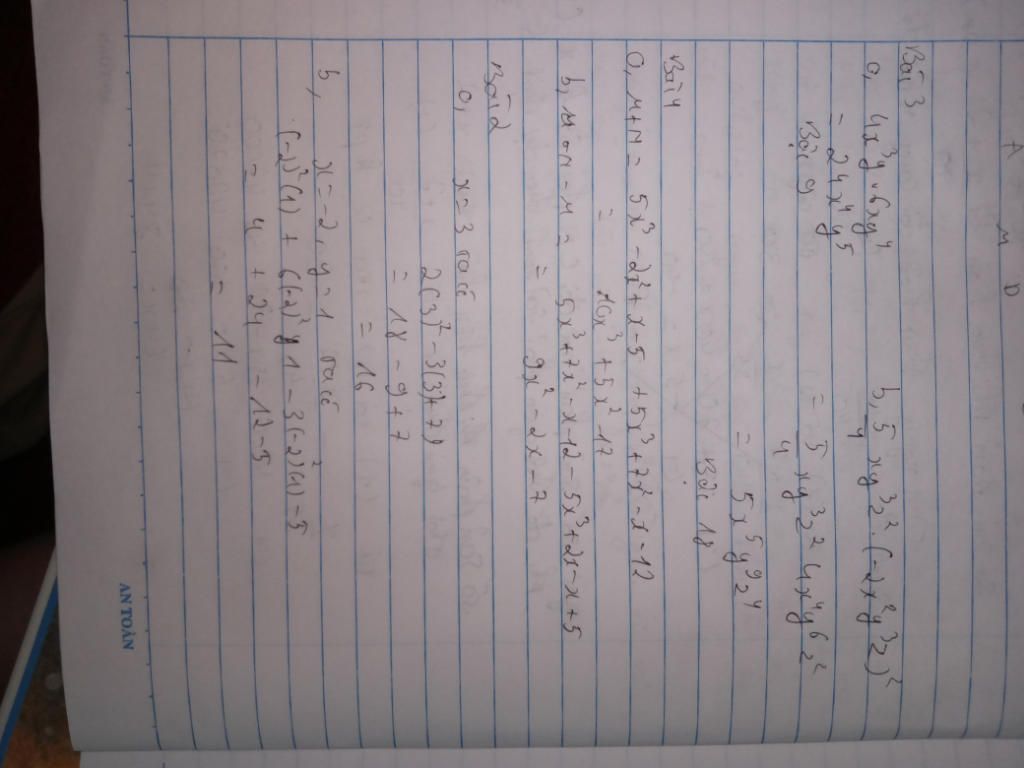 A
M D
Bài 3
a, 4x³y . 6xy⁴ b, 5/4 xy³z² . (-2x²y³z)²
= 24x⁴y⁵ = 5/4 xy³z² 4x⁴y⁶z²
Bậc 9 = 5x⁵y⁹z⁴
Bậc 18
Bài 4
a, M+N = 5x³ - 2x² + x - 5 + 5x³ + 7x² - x - 12
= 10x³ + 5x² - 17
b, = 5x³ + 7x² - x - 12 - 5x³ + 2x - x + 5
= 9x² - 2x - 7
Bài 2
a, x = 3 ta có
2(3)² - 3(3) + 7
= 18 - 9 + 7
= 16
b, x = -2, y = 1 ta có
(-2)²(1) + 6(-2)² 1 - 3(-2)²(1) - 5
= 4 + 24 - 12 - 5
= 11
AN TOÀN